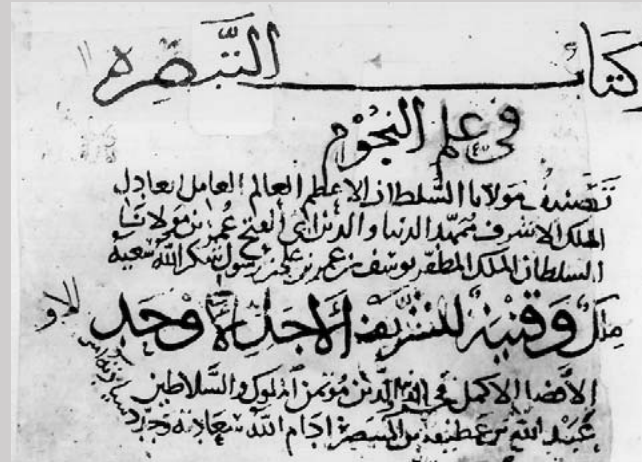 كتاب التبصره
في علم النجوم
تصنيف مولانا السلطان الاعظم العالم العامل العادل
الملك الاشرف ممهد الدنيا والدين ابي الفتح عمر بن مولانا
السلطان الملك المظفر يوسف بن عمر بن علي بن رسول شكر الله سعيه
ملك وقنية للشريف الاجل الاوحد
الافضل الاكمل فخر الدين مؤتمن الملوك والسلاطين
عبد الله بن ادام الله سعادته